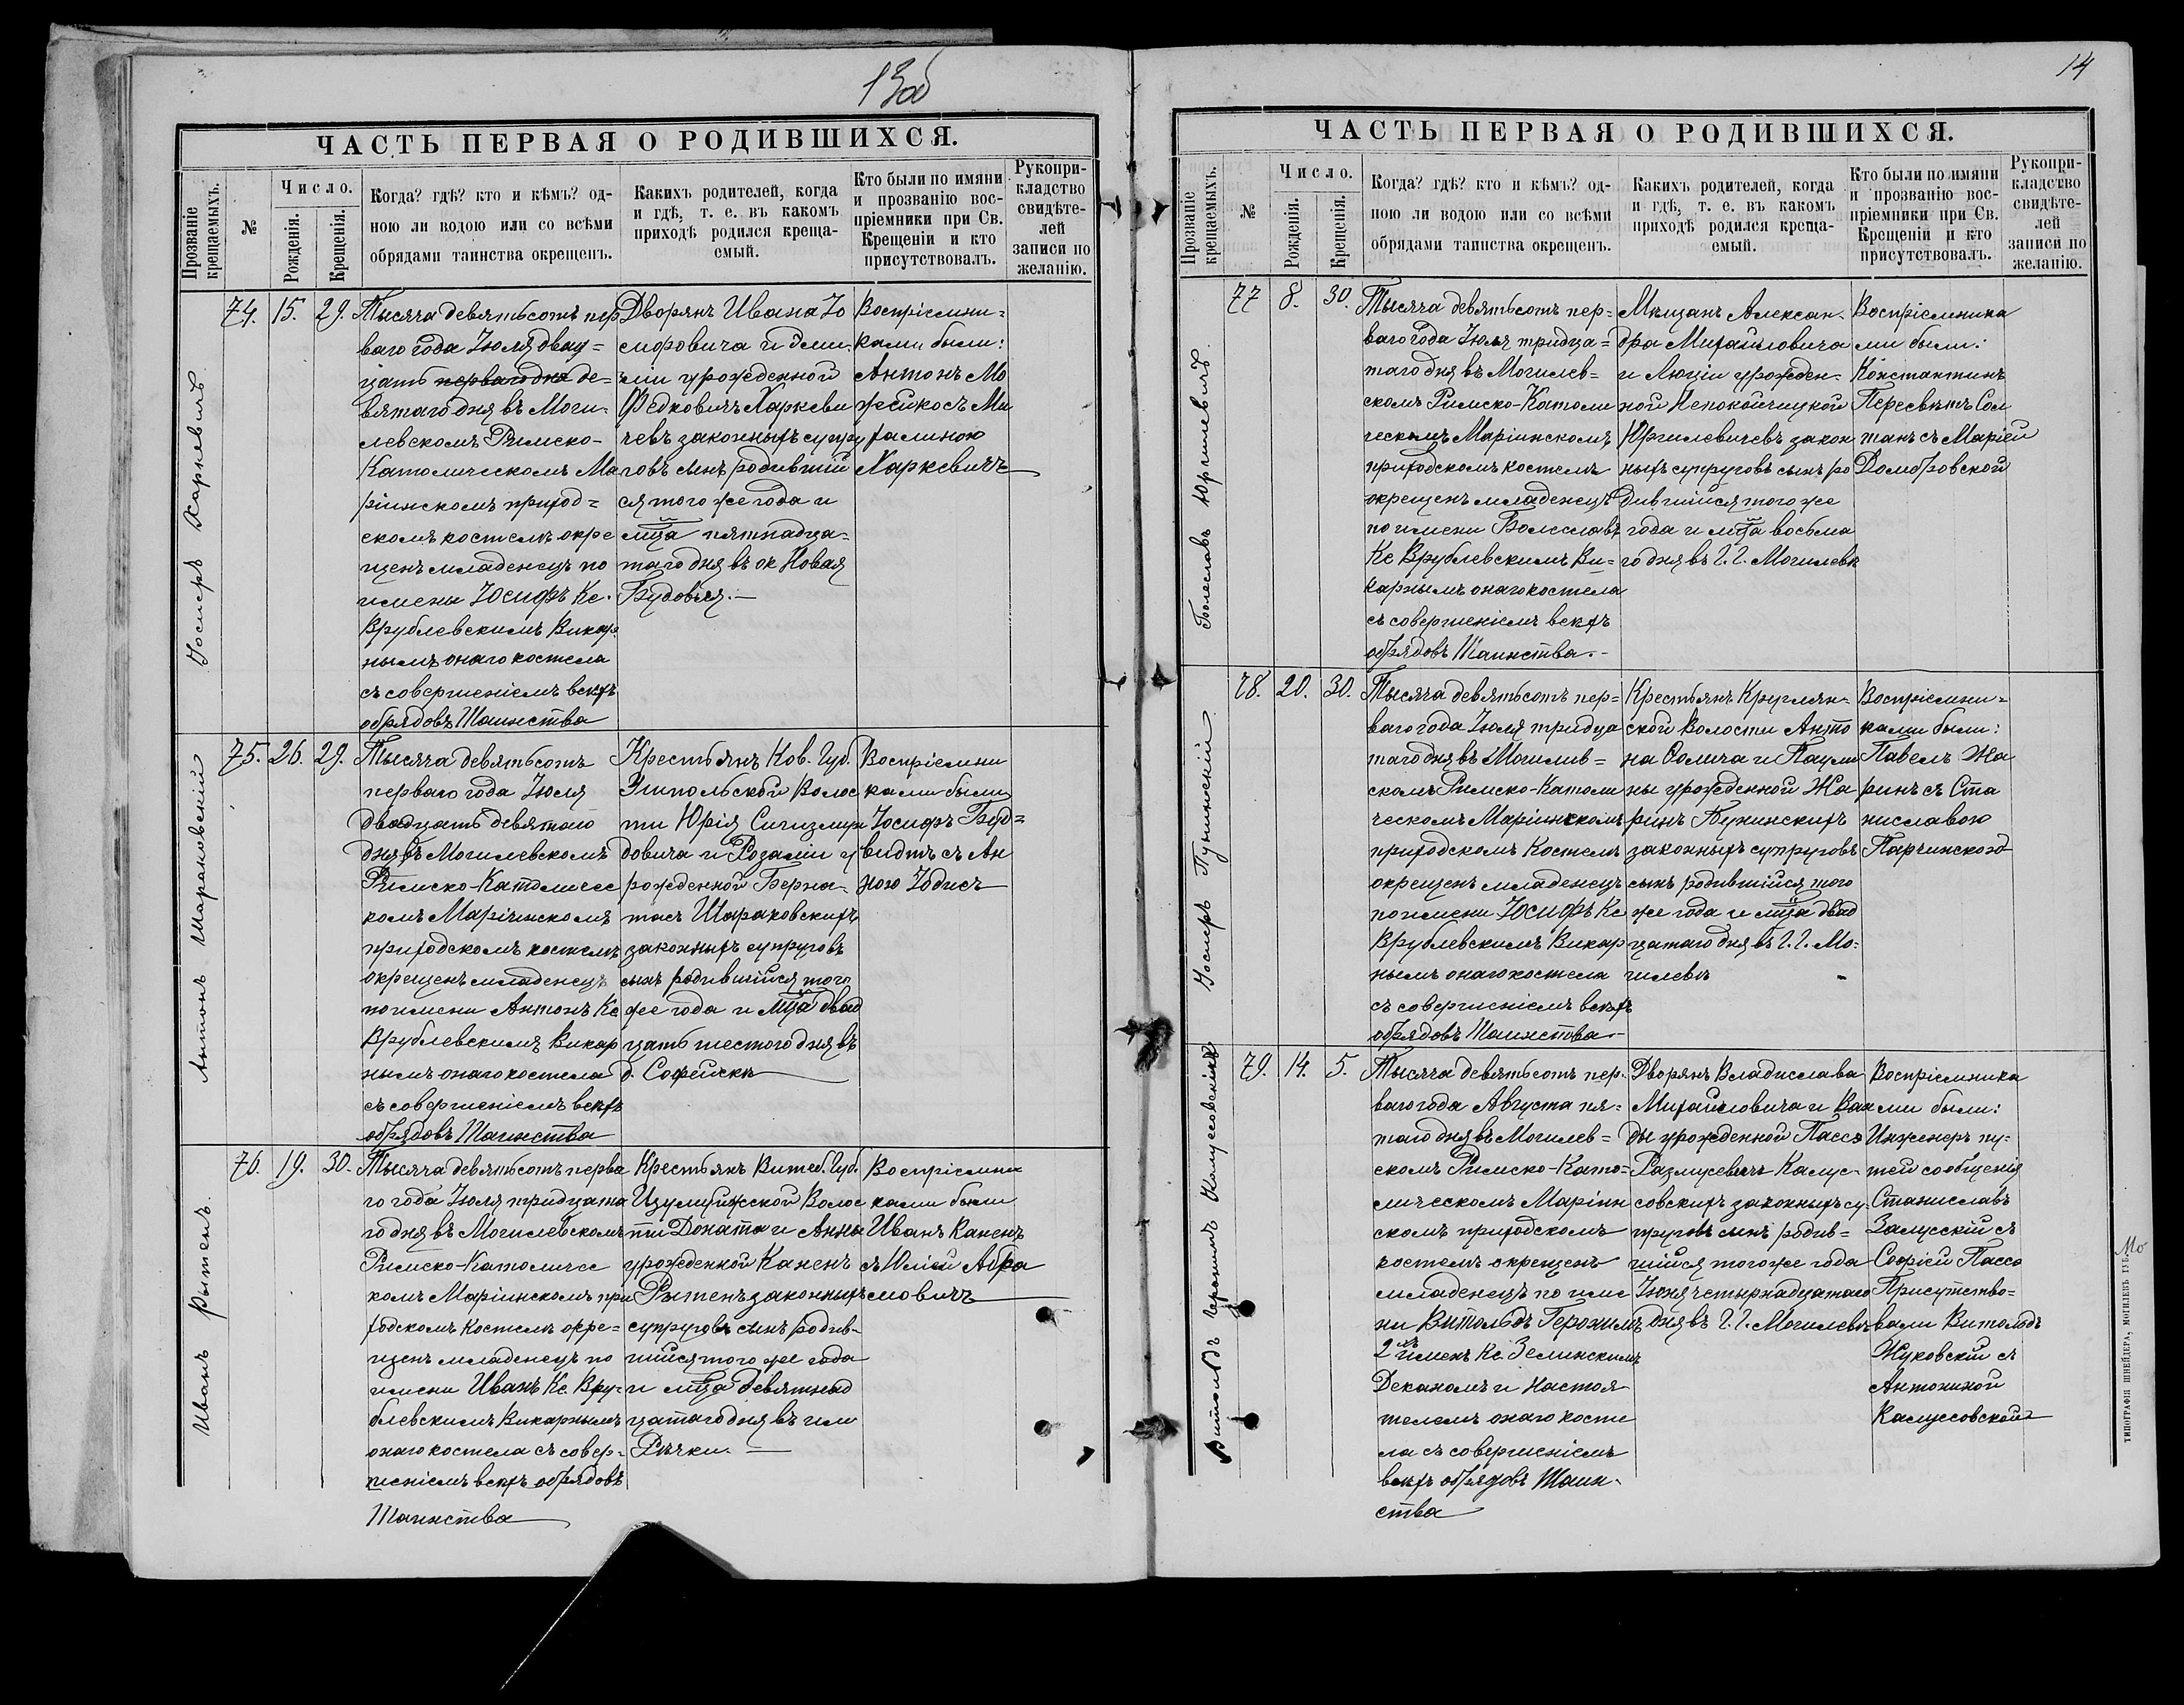 13об
ЧАСТЬ ПЕРВАЯ О РОДИВШИХСЯ.
Прозваніе крещаемыхъ.
№
Число.
Рожденія.
Крещенія.
Когда? гдѣ? кто и кѣмъ? од-
ною ли водою или со всѣми
обрядами таинства окрещенъ.
Какихъ родителей, когда
и гдѣ, т. е. въ какомъ
приходѣ родился креща-
емый.
Кто были по имяни
и прозванію вос-
пріемники при Св.
Крещеніи и кто
присутствовалъ.
Рукопри-
кладство
свидѣте-
лей
записи по
желанію.
Іосифъ Харкевичъ
74. 15. 29.
Тысяча девятьсотъ пер
ваго года Іюля двад=
цать перваго дня де=
вятаго дня въ Моги-
левскомъ Римско-
Католическомъ Ма
ріинскомъ приход=
скомъ костелѣ окре
щенъ младенецъ по
имены Іосифъ Кс.
Врублевскимъ Викар
нымъ онаго костела
съ совершеніемъ всѣхъ
обрядовъ Таинства
Дворянъ Ивана
моровича и Эми-
ліи урожденной
Федковичъ Харкеви
чевъ законныхъ супру
говъ сынъ родившій
ся того же года и
мца пятнадца-
таго дня въ ок Новая
Будовля.—
Воспріемни=
ками были:
Антонъ Мо
жейко съ Ми
халиною
Харкевичъ
Антонъ Шараковскій
75. 26. 29.
Тысяча девятьсотъ
перваго года Іюля
двадцать девятаго
дня въ Могилевскомъ
Римско-Католичес
комъ Маріинскомъ
приходскомъ костелѣ
окрещенъ младенецъ
по имени Антонъ Кс
Врублевскимъ Викар
нымъ онаго костела
съ совершеніемъ всѣхъ
обрядовъ Таинства
Крестьянъ Ков. Губ.
Волос
ти Юрія Сигизмун
довича и Розаліи у
рожденной Берна-
тась Шараковскихъ
законныхъ супруговъ
сынъ родившійся того
же года и мца двад
цать шестого дня въ
д. Софейскѣ
Воспріемни
ками были
Іосифъ Буд=
видъ съ Ан
ною Іодисъ
Иванъ Рытенъ.
76. 19. 30.
Тысяча девятьсотъ перва
го года Іюля тридцата
го дня въ Могилевскомъ
Римско-Католичес
комъ Маріинскомъ при
ходскомъ костелѣ окре=
щенъ младенецъ по
имени Иванъ Кс. Вру-
блевскимъ Викарнымъ
онаго костела съ совер-
шеніемъ всѣхъ обрядовъ
Таинства
Крестьянъ Витеб. Губ.
Волос
ти Доната и Анны
урожденной Каненъ
Рытенъ законныхъ
супруговъ сынъ родив-
шійся того же года
и мца девятнад
цатаго дня въ им
Рѣчки.—
Воспріемни
ками были
Иванъ Каненъ
съ Юліей Абра
мовичъ
14
ЧАСТЬ ПЕРВАЯ О РОДИВШИХСЯ.
Прозваніе крещаемыхъ.
№
Число.
Рожденія.
Крещенія.
Когда? гдѣ? кто и кѣмъ? од-
ною ли водою или со всѣми
обрядами таинства окрещенъ.
Какихъ родителей, когда
и гдѣ, т. е. въ какомъ
приходѣ родился креща-
емый.
Кто были по имяни
и прозванію вос-
пріемники при Св.
Крещеніи и кто
присутствовалъ.
Рукопри-
кладство
свидѣте-
лей
записи по
желанію.
Болеславъ Юргилевичъ.
77 8. 30.
Тысяча девятьсотъ пер=
ваго года Іюля тридца=
таго дня въ Могилев=
скомъ Римско-Католи
ческомъ Маріинскомъ
приходскомъ костелѣ
окрещенъ младенецъ
по имени Болеславъ
Кс Врублевскимъ Ви=
карнымъ онаго костела
съ совершеніемъ всѣхъ
обрядовъ Таинства.-
Мѣщанъ Алексан-
дра Михайловича
и Люціи урожден-
ной Непокойчицкой
Юргилевичевъ закон
ныхъ супруговъ сынъ ро
дившійся того же
года и мца восьма
го дня въ Г. Г. Могилевѣ
Воспріемника
ми были:
Константинъ
Пересвѣтъ Сол
танъ съ Маріей
Домбровской
Іосифъ Пунинскій.
78. 20. 30.
Тысяча девятьсотъ пер-
ваго года Іюля тридца
таго дня въ Могилив=
скомъ Римско-Католи
ческомъ Маріинскомъ
приходскомъ Костелѣ
окрещенъ младенецъ
по имени Іосифъ Кс
Врублевскимъ Викар
нымъ онаго костела
съ совершеніемъ всѣхъ
обрядовъ Таинства-
Крестьянъ Круглян-
ской Волости Анто
на Фомича и Паули
ны урожденной Жа
ринъ Пунинскихъ
законныхъ супруговъ
сынъ родившійся того
же года и мца двад
цатаго дня въ Г. Г. Мо-
гилевѣ
Воспріемни=
ками были:
Павелъ Жа
ринъ съ Ста
ниславою
Парчинской
Витольдъ Геронимъ Калуссовскій
79. 14. 5.
Тысяча девятьсотъ пер-
ваго года Августа пя=
таго дня въ Могилев=
скомъ Римско-Като=
лическомъ Маріин
скомъ приходскомъ
костелѣ окрещенъ
младенецъ по име
ни Витольдъ Геронимъ
2хъ именъ Кс. Зелинскимъ
Деканомъ и Настоя-
телемъ онаго косте
ла съ совершеніемъ
всѣхъ обрядовъ Таин-
ства
Дворянъ Владислава
Михайловича и Ван
ды урожденной Пассо
Размусевичъ Калус-
совскихъ законныхъ су-
пруговъ сынъ родив=
шійся того же года
Іюня четырнадцатаго
дня въ Г. Г. Могилевѣ
Воспріемника
ми были:
Инженеръ пу=
тей сообщенія
Станиславъ
Залусскій съ
Софіей Пассо
Присутство=
вали Витольдъ
Жуковскій съ
Антониной
Калуссовской
Мо
ТИПОГРАФІЯ ШНЕЙДЕРА, МОГИЛЕВЪ ГУБ.